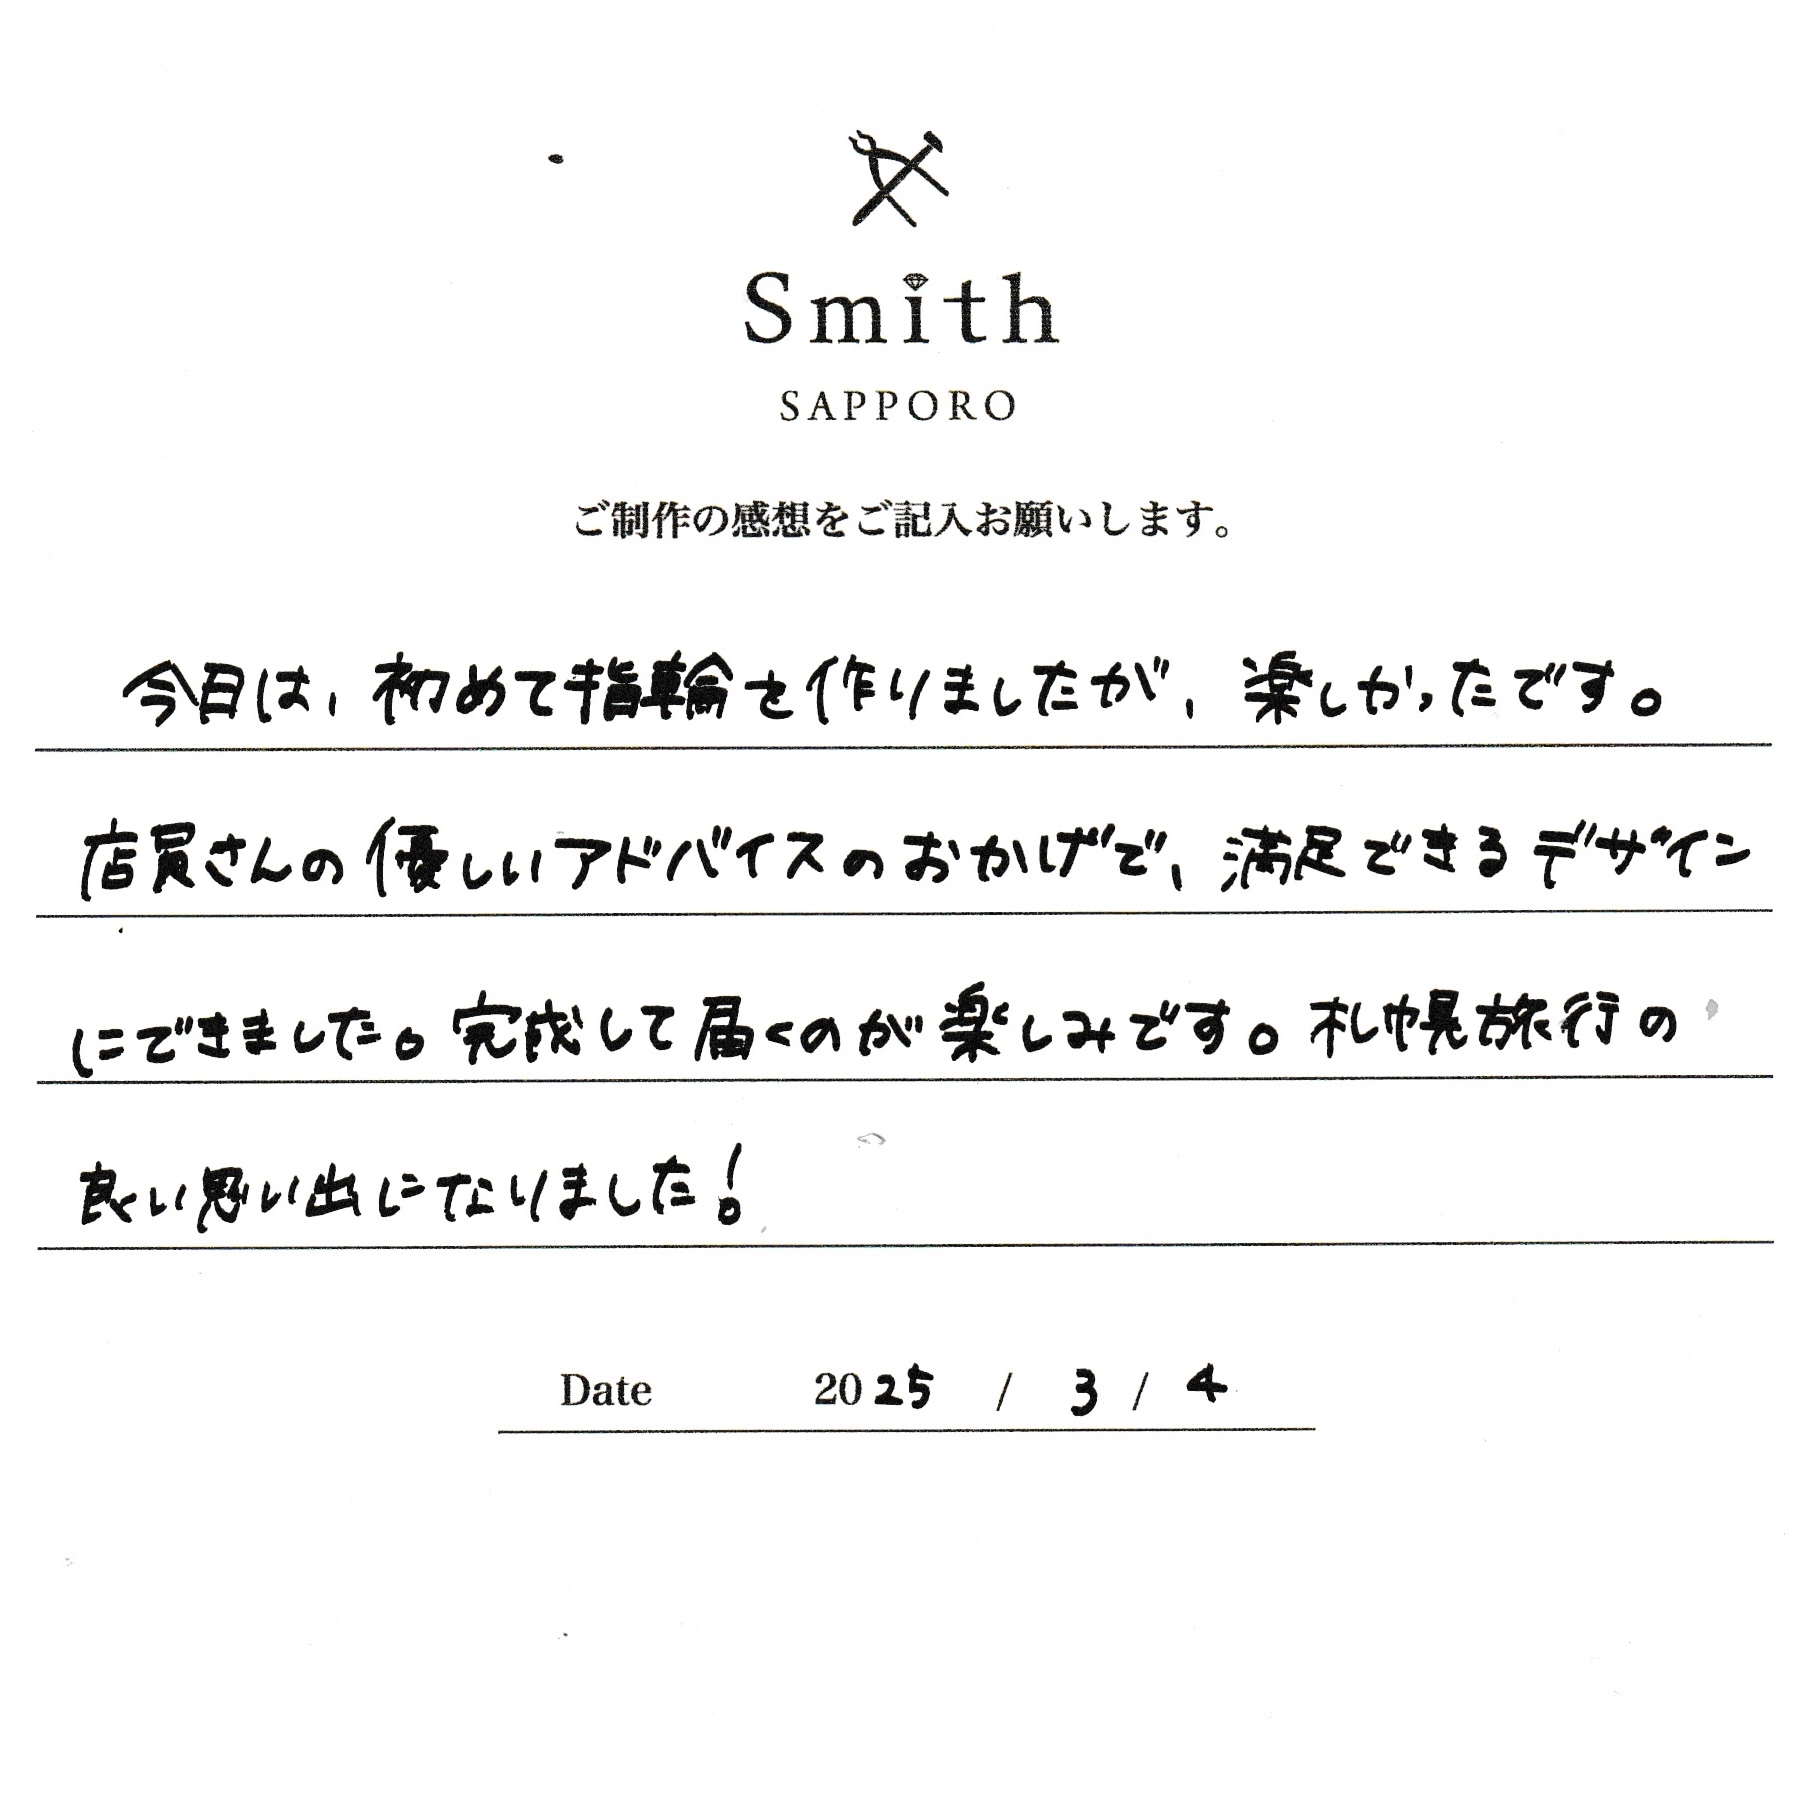 Smith
SAPPORO
ご制作の感想をご記入お願いします。
今日は、初めて指輪を作りましたが、楽しかったです。
店員さんの優しいアドバイスのおかげで、満足できるデザイン
にできました。完成して届くのが楽しみです。札幌旅行の
良い思い出になりました!
Date 2025 / 3 / 4